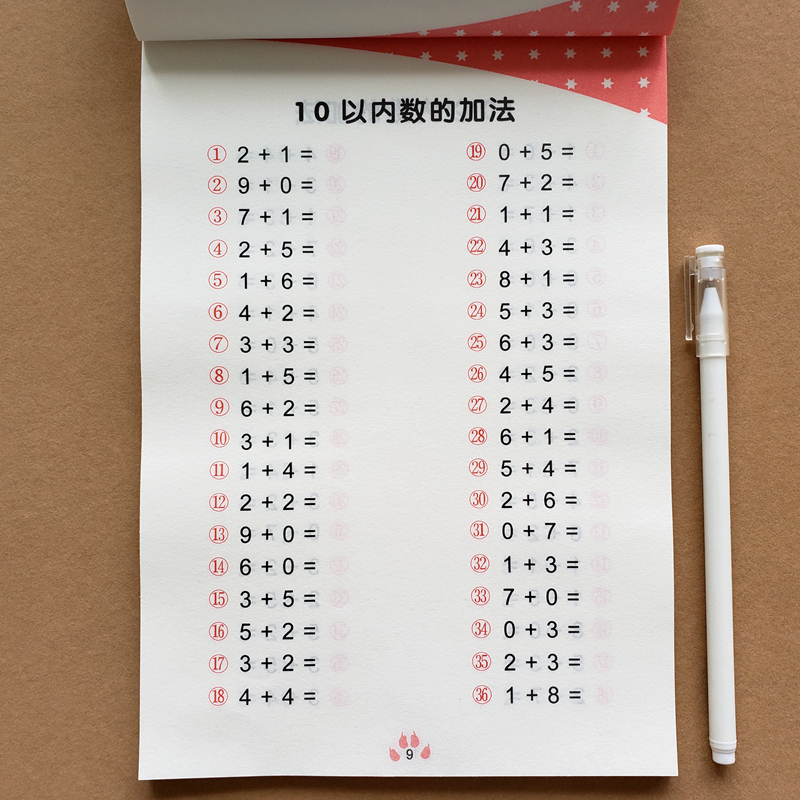 10以内数的加法
① 2 + 1 =
② 9 + 0 =
③ 7 + 1 =
④ 2 + 5 =
⑤ 1 + 6 =
⑥ 4 + 2 =
⑦ 3 + 3 =
⑧ 1 + 5 =
⑨ 6 + 2 =
⑩ 3 + 1 =
⑪ 1 + 4 =
⑫ 2 + 2 =
⑬ 9 + 0 =
⑭ 6 + 0 =
⑮ 3 + 5 =
⑯ 5 + 2 =
⑰ 3 + 2 =
⑱ 4 + 4 =
⑲ 0 + 5 =
⑳ 7 + 2 =
㉑ 1 + 1 =
㉒ 4 + 3 =
㉓ 8 + 1 =
㉔ 5 + 3 =
㉕ 6 + 3 =
㉖ 4 + 5 =
㉗ 2 + 4 =
㉘ 6 + 1 =
㉙ 5 + 4 =
㉚ 2 + 6 =
㉛ 0 + 7 =
㉜ 1 + 3 =
㉝ 7 + 0 =
㉞ 0 + 3 =
㉟ 2 + 3 =
㊱ 1 + 8 =
9